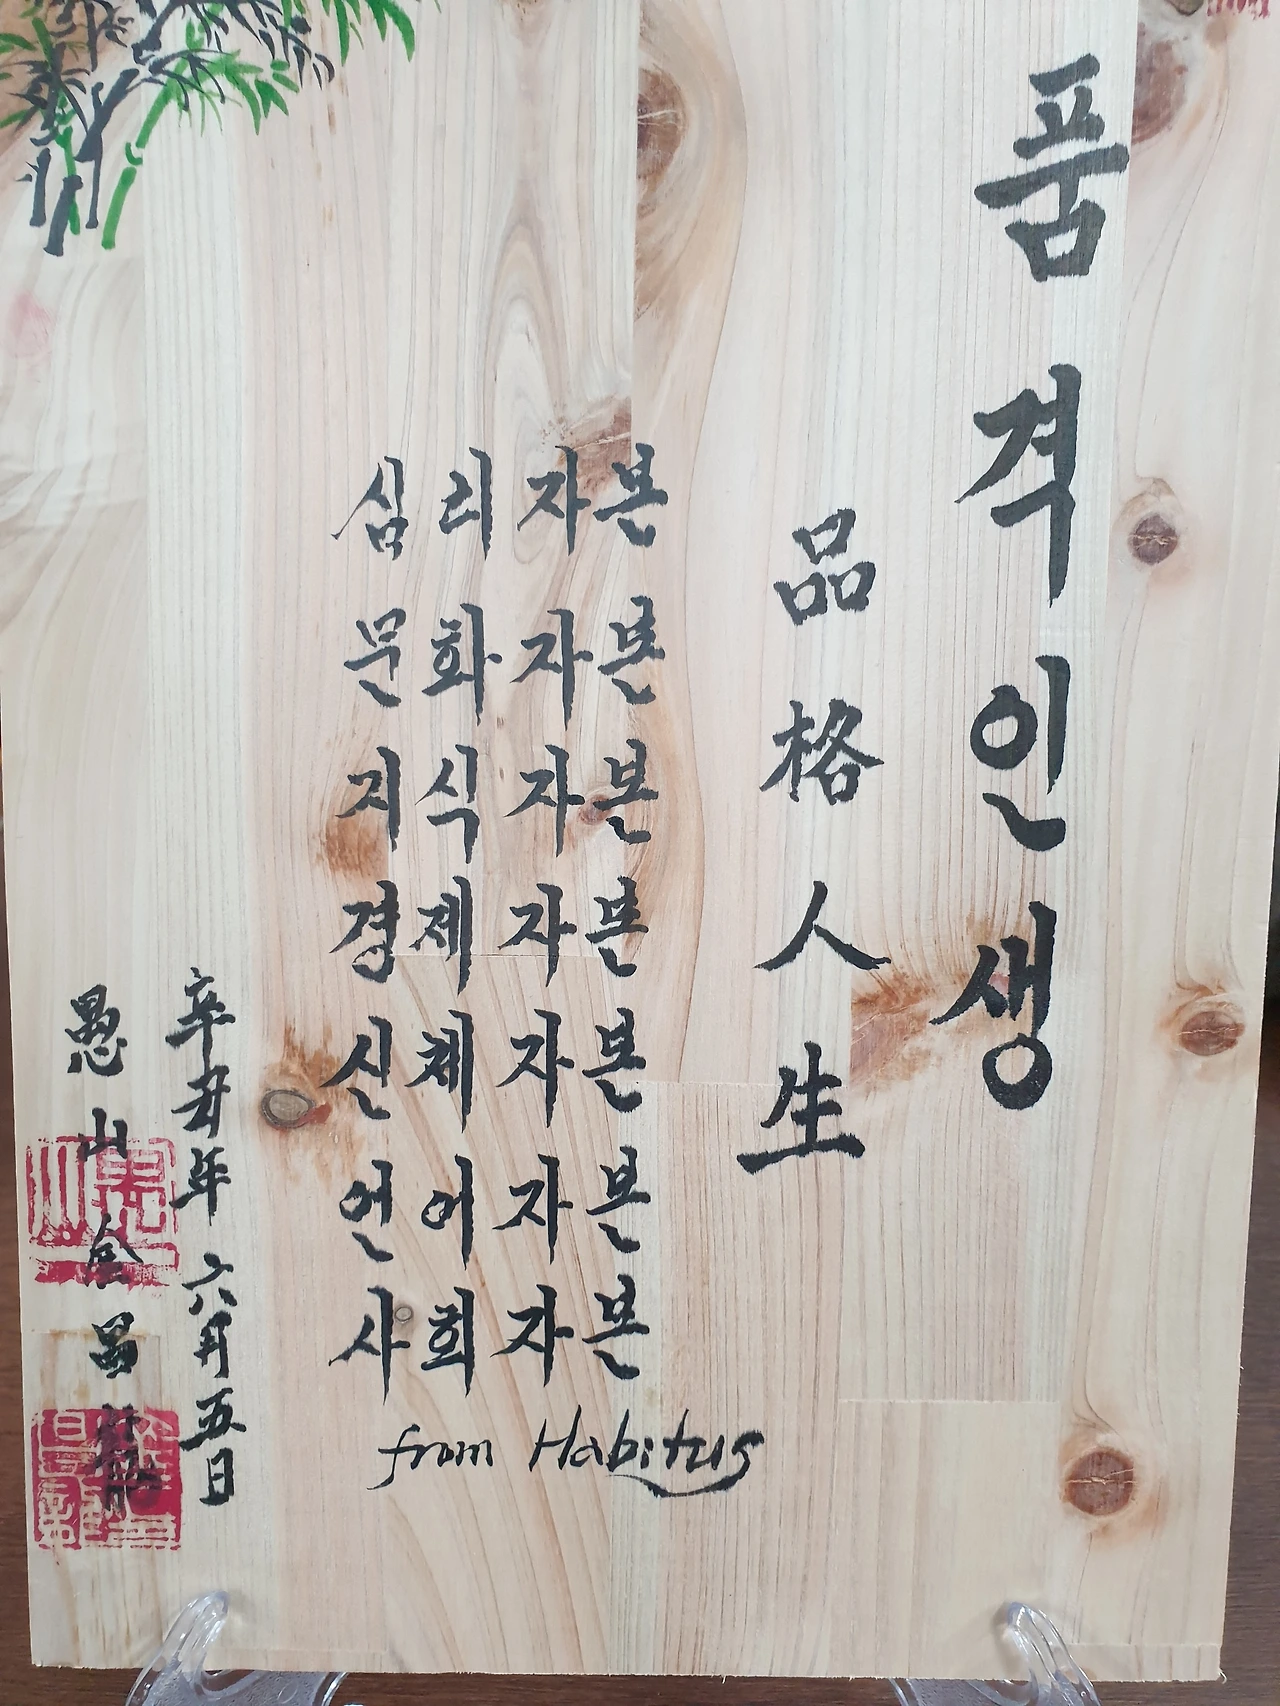 품격인생
品格人生
심리자본
문화자본
지식자본
경제자본
신체자본
언어자본
사회자본
from Habitus
辛丑年 六月五日
愚山 金昌